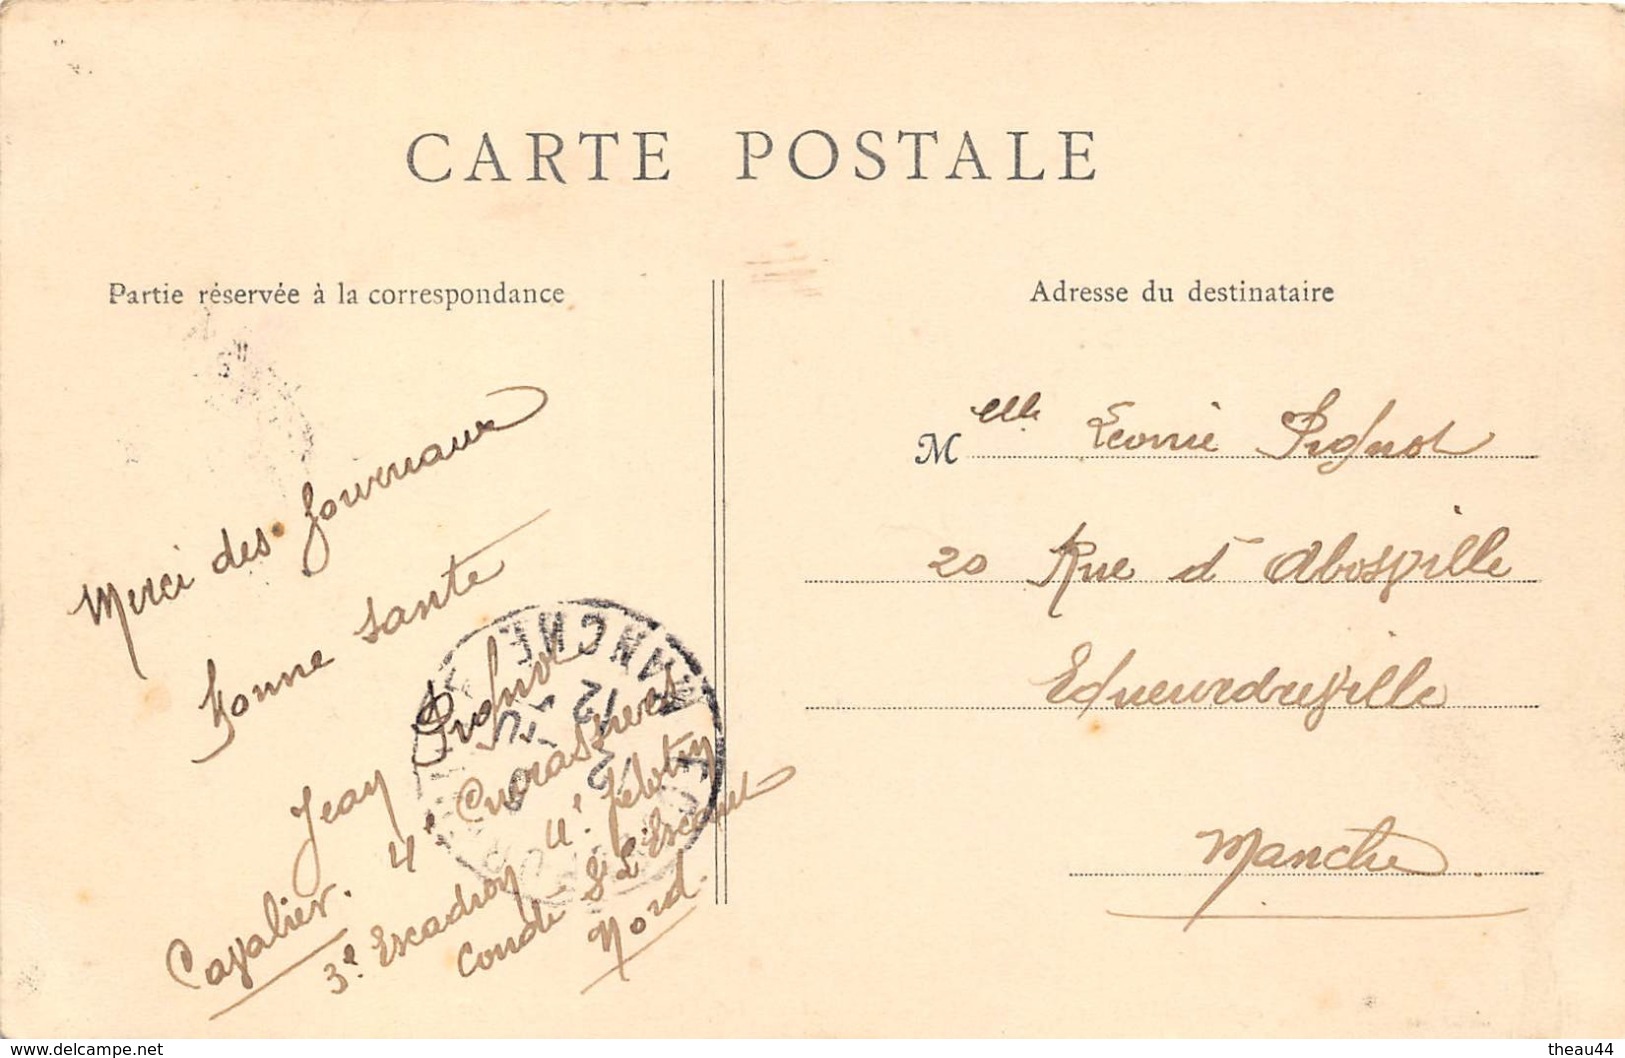 CARTE POSTALE
Partie réservée à la correspondance
Adresse du destinataire
Merci des Journaux
bonne santé
Jean Pignot
Cavalier. 4e Cuirassiers
3e. Escadron 4e. Peloton
Condé St L'Escaut
Nord.
Melle Leonie Pignot
20 Rue d'
Manche
MANCHE
12
www.delcampe.net
theau44